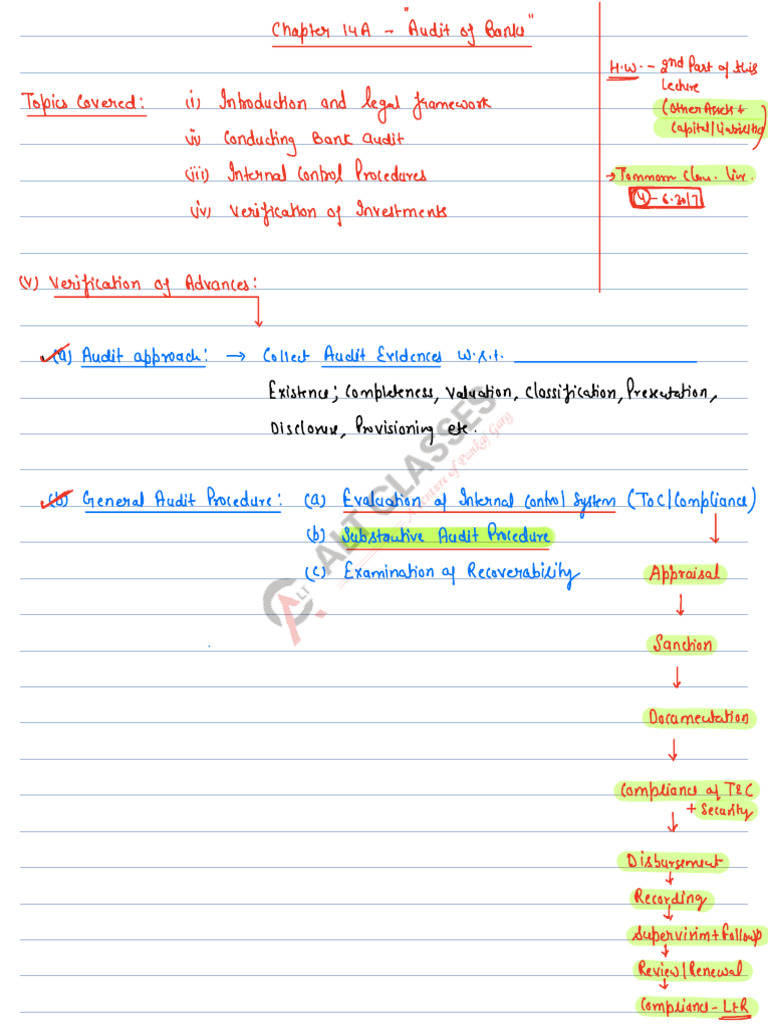 Chapter 14A - "Audit of Banks"
H.W. - 2nd Part of this
Lecture
(Other Assets +
Capital/Liabilities)
Topics Covered: (i) Introduction and legal framework
(ii) Conducting Bank Audit
(iii) Internal Control Procedures
(iv) Verification of Investments
→ Tommorrow Class Live
(4) - 6.30/7
(v) Verification of Advances:
(a) Audit approach: → Collect Audit Evidences w.r.t.
Existence; Completeness, Valuation, Classification, Presentation,
Disclosure, Provisioning etc.
(b) General Audit Procedure: (a) Evaluation of Internal Control System (ToC/Compliance)
(b) Substantive Audit Procedure
(c) Examination of Recoverability
Appraisal
Sanction
Documentation
Compliance of T&C
+ Security
Disbursement
Recording
Supervision + Followup
Review/Renewal
Compliance - L&R
ALT CLASSES
A venture of Pankaj Garg
ALT